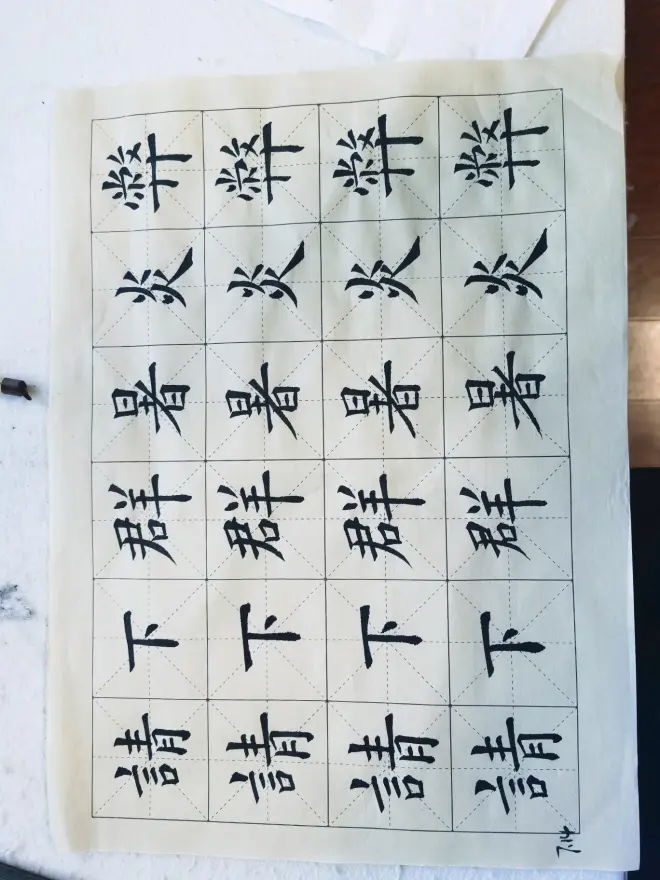 弊弊弊弊
炎炎炎炎
暑暑暑暑
群群群群
下下下下
請請請請
7.14